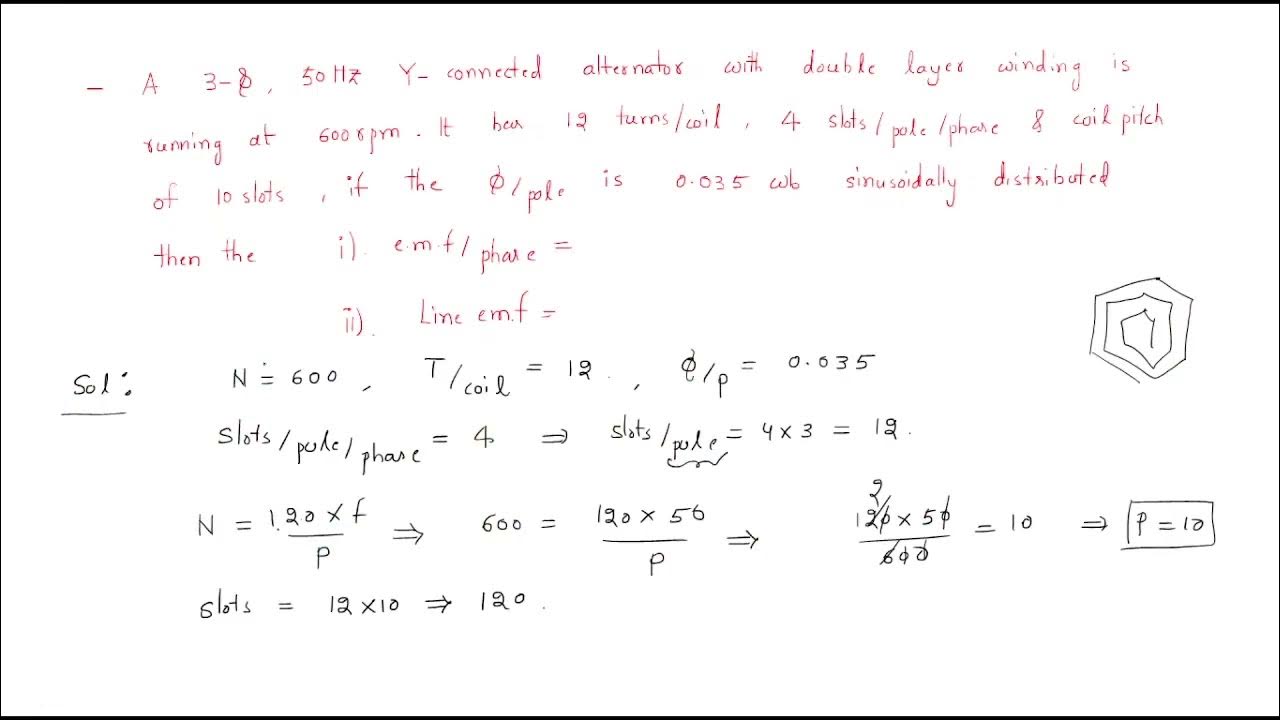 - A 3-φ, 50 Hz Y-connected alternator with double layer winding is
running at 600 rpm. It has 12 turns/coil, 4 slots/pole/phase & coil pitch
of 10 slots, if the φ/pole is 0.035 wb sinusoidally distributed
then the i). e.m.f/phase =
ii). Line e.m.f =
Sol: N = 600, T/coil = 12, φ/p = 0.035
Slots/pole/phase = 4 ⇒ slots/pole = 4 × 3 = 12.
N = 120 × f / P ⇒ 600 = 120 × 50 / P ⇒ 120 × 50 / 600 = 10 ⇒ P = 10
2
Slots = 12 × 10 ⇒ 120.